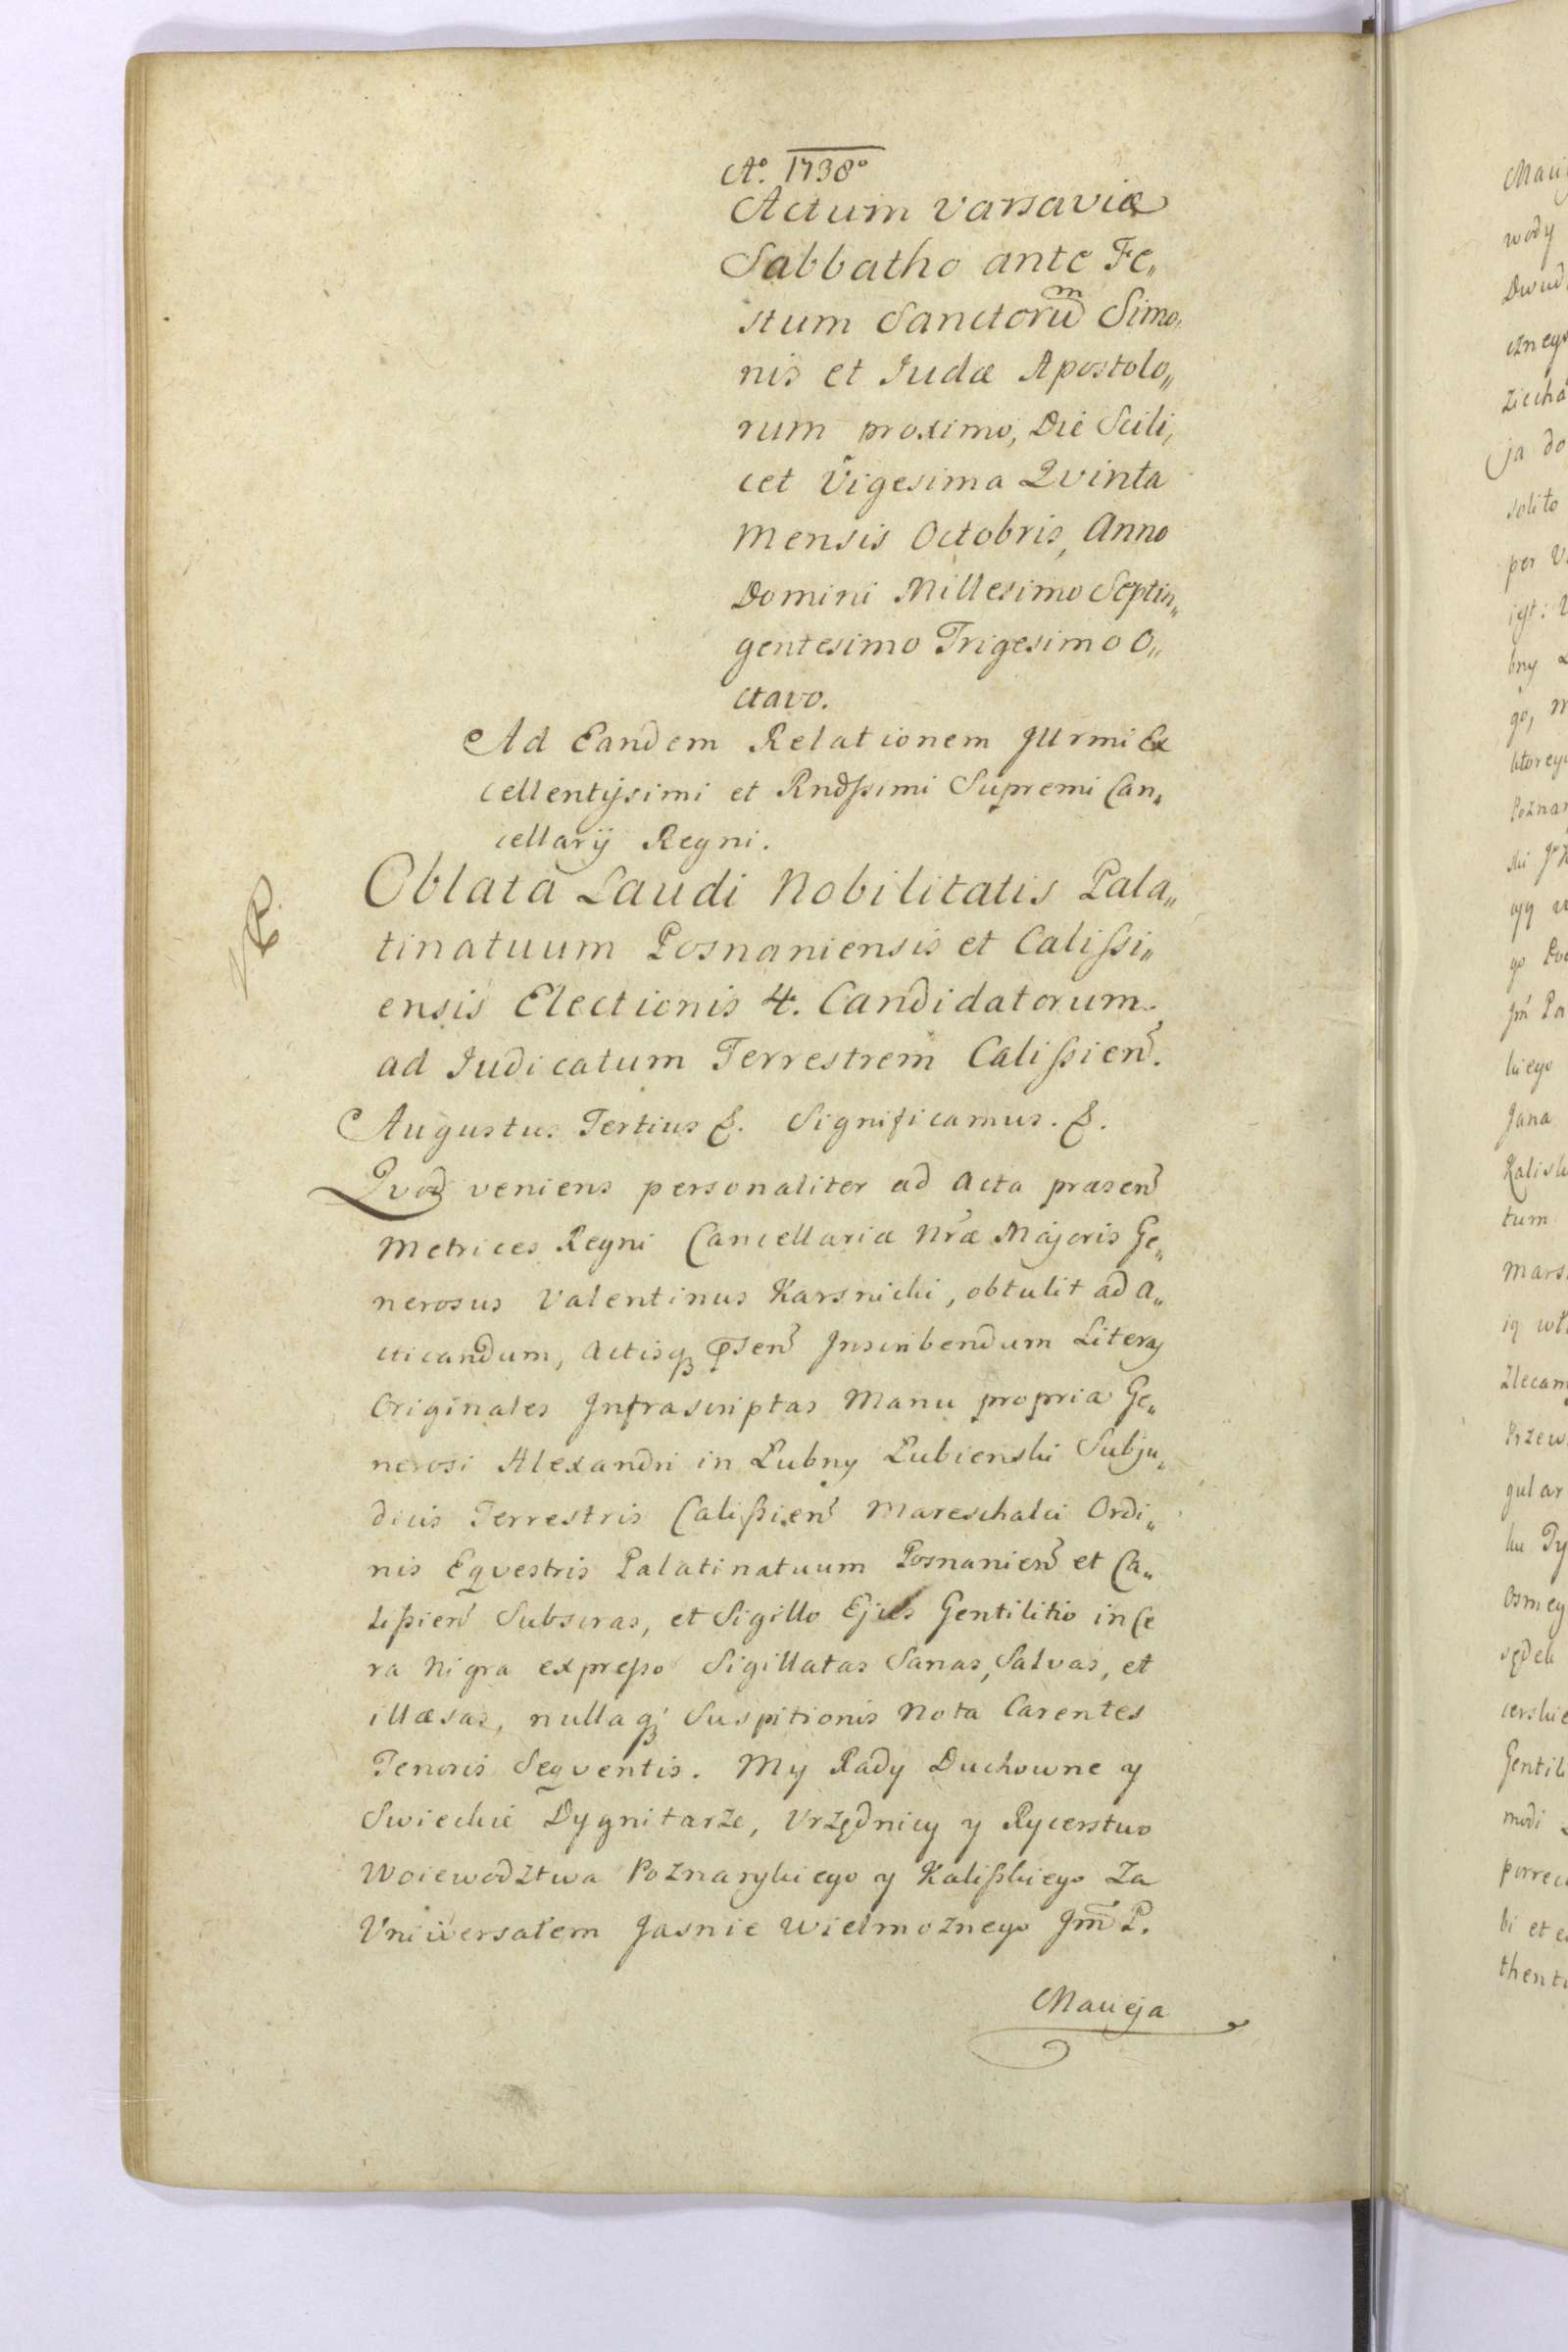 Aº. 1738º
Actum Varsaviæ
Sabbatho ante Fe„
stum Sanctorum Simo„
nis et Judæ Apostolo„
rum proximo, Die Scili„
cet Vigesima Qvinta
Mensis Octobris, Anno
Domini Millesimo Septin„
gentesimo Trigesimo O„
ctavo.
Ad Eandem Relationem Jllrmi Ex
cellentißimi et Rndßimi Supremi Can„
cellarij Regni.
Oblata Laudi Nobilitatis Pala„
tinatuum Posnaniensis et Calißi„
ensis Electionis 4. Candidatorum
ad Judicatum Terrestrem Calißien.
Augustus Tertius &. Significamus. &.
Qvod veniens personaliter ad Acta præsen
Metrices Regni Cancellariæ Nræ Majoris Ge„
nerosus Valentinus Karsnicki, obtulit ad A„
cticandum, Actisq3 psen Jnscribendum Literas
Originales Jnfrascriptas Manu propria Ge„
nerosi Alexandri in Lubny Lubienski Subju„
dicis Terrestris Calißien Mareschalci Ordi„
nis Eqvestris Palatinatuum Posnanien et Ca„
lißien Subscras, et Sigillo Ejus Gentilitio in Ce
ra Nigra expreßo Sigillatas Sanas, Salvas, et
illæsas, nullaq3 Suspitionis Nota Carentes
Tenoris Seqventis. My Rady Duchowne y
Swieckie Dygnitarze, Vrzędnicy y Rycerstwo
Woiewodztwa Poznanskiego y Kalißkiego Za
Vniwersałem Jasnie Wielmoznego Jm P.
Macieja
V. R.
Maci
wody
Dwud
czneys
ziecha
ja do
solito
per V
jest:
bny
go, M
ktorey
Poznan
ski
go
Jm Pa
kiego
Jana
Kalisk
tum
Mars
Zlecam
Przew
gular
ku Ty
Osmey
sędek
cerskie
Gentili
modi
porrec
bi et e
thenti